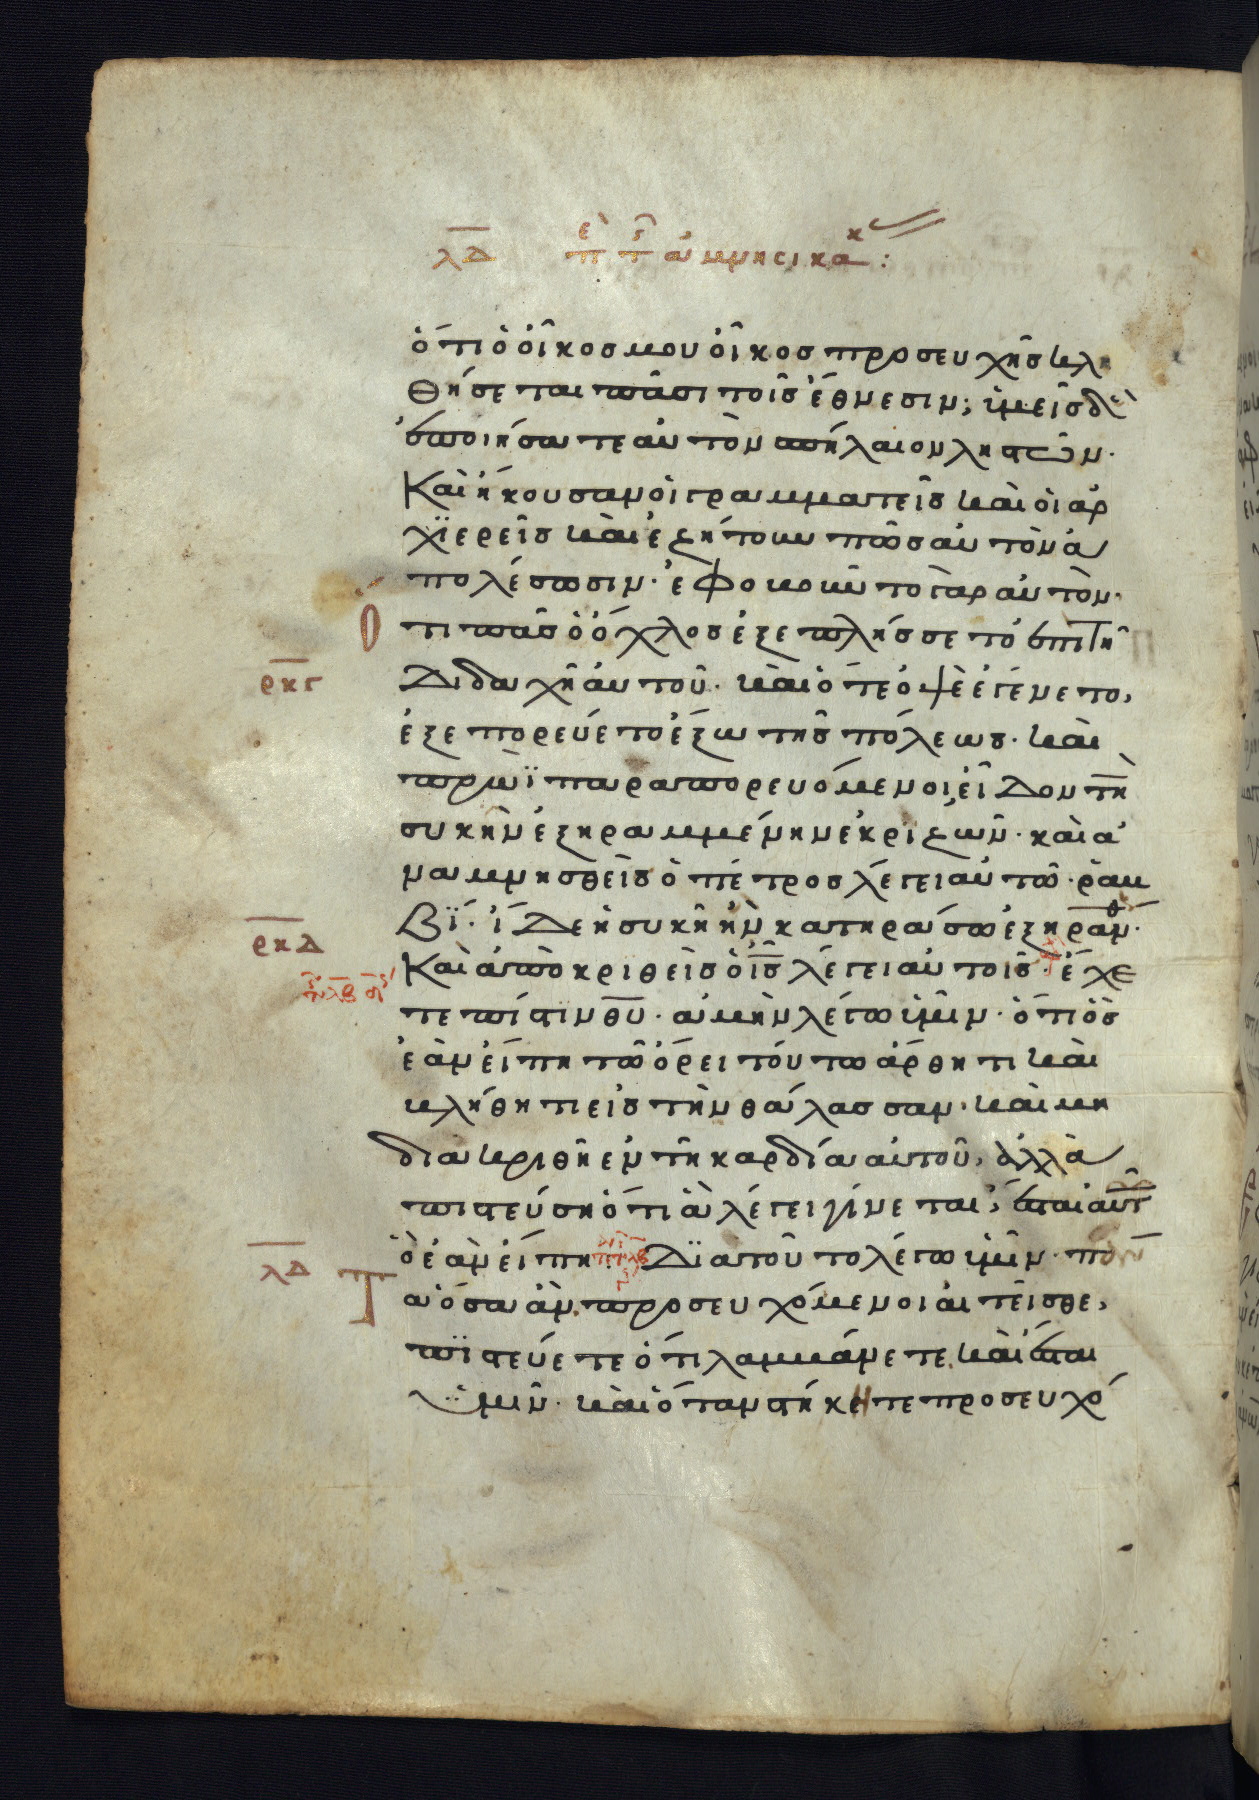 λδ περι τ αμνησικακ:
ὅτι ὁ οἶκος μου οἶκος προσευχῆς κλη
θήσεται πᾶσι τοῖς ἔθνεσιν; ὑμεῖς δὲ
ἐποιήσατε αὐτὸν σπήλαιον ληστῶν.
Καὶ ἤκουσαν οἱ γραμματεῖς καὶ οἱ ἀρ
χϊερεῖς καὶ ἐζήτουν πῶς αὐτὸν ἀ
πολέσωσιν. ἐφοβοῦντο γὰρ αὐτὸν.
Ὅτι πᾶς ὁ ὄχλος ἐξεπλήσσετο ἐπι τῆ
ρκγ διδαχῆ αὐτοῦ. καὶ ὅτε ὀψὲ ἐγένετο,
ἐξεπορεύετο ἔξω τῆς πόλεως. καὶ
πρωῒ παραπορευόμενοι εἶδον τὴ
συκῆν ἐξηραμμένην ἐκ ριζῶν. καὶ ἀ
ναμνησθεὶς ὁ πέτρος λέγει αὐτῶ. ραβ
βΐ. ἴδε ἡ συκῆ ἣν κατηράσω ἐξηράν.
ρκδ Καὶ ἀποκριθεὶς ὁ ις λέγει αὐτοῖς. ἔχε
τε πίστιν θυ. ἀμὴν λέγω ὑμῖν. ὅτι ὃς
ἐὰν εἴπη τῶ ὄρει τούτω ἄρθητι καὶ
βλήθητι εἰς τὴν θάλασσαν. καὶ μη
διακριθῆ ἐν τῆ καρδία αὐτοῦ, ἀλλὰ
πιστεύση ὅτι ἃ λέγει γίνεται, ἔσται αὐτ
ὃ ἐὰν εἴπη Δϊατοῦτο λέγω ὑμῖν. π
λδ Τα ὅσα ἂν προσευχόμενοι αἰτεῖσθε,
πϊστεύετε ὅτι λαμβάνετε. καὶ ἔσται
ὑμῖν. καὶ ὅταν στήκητε προσευχό